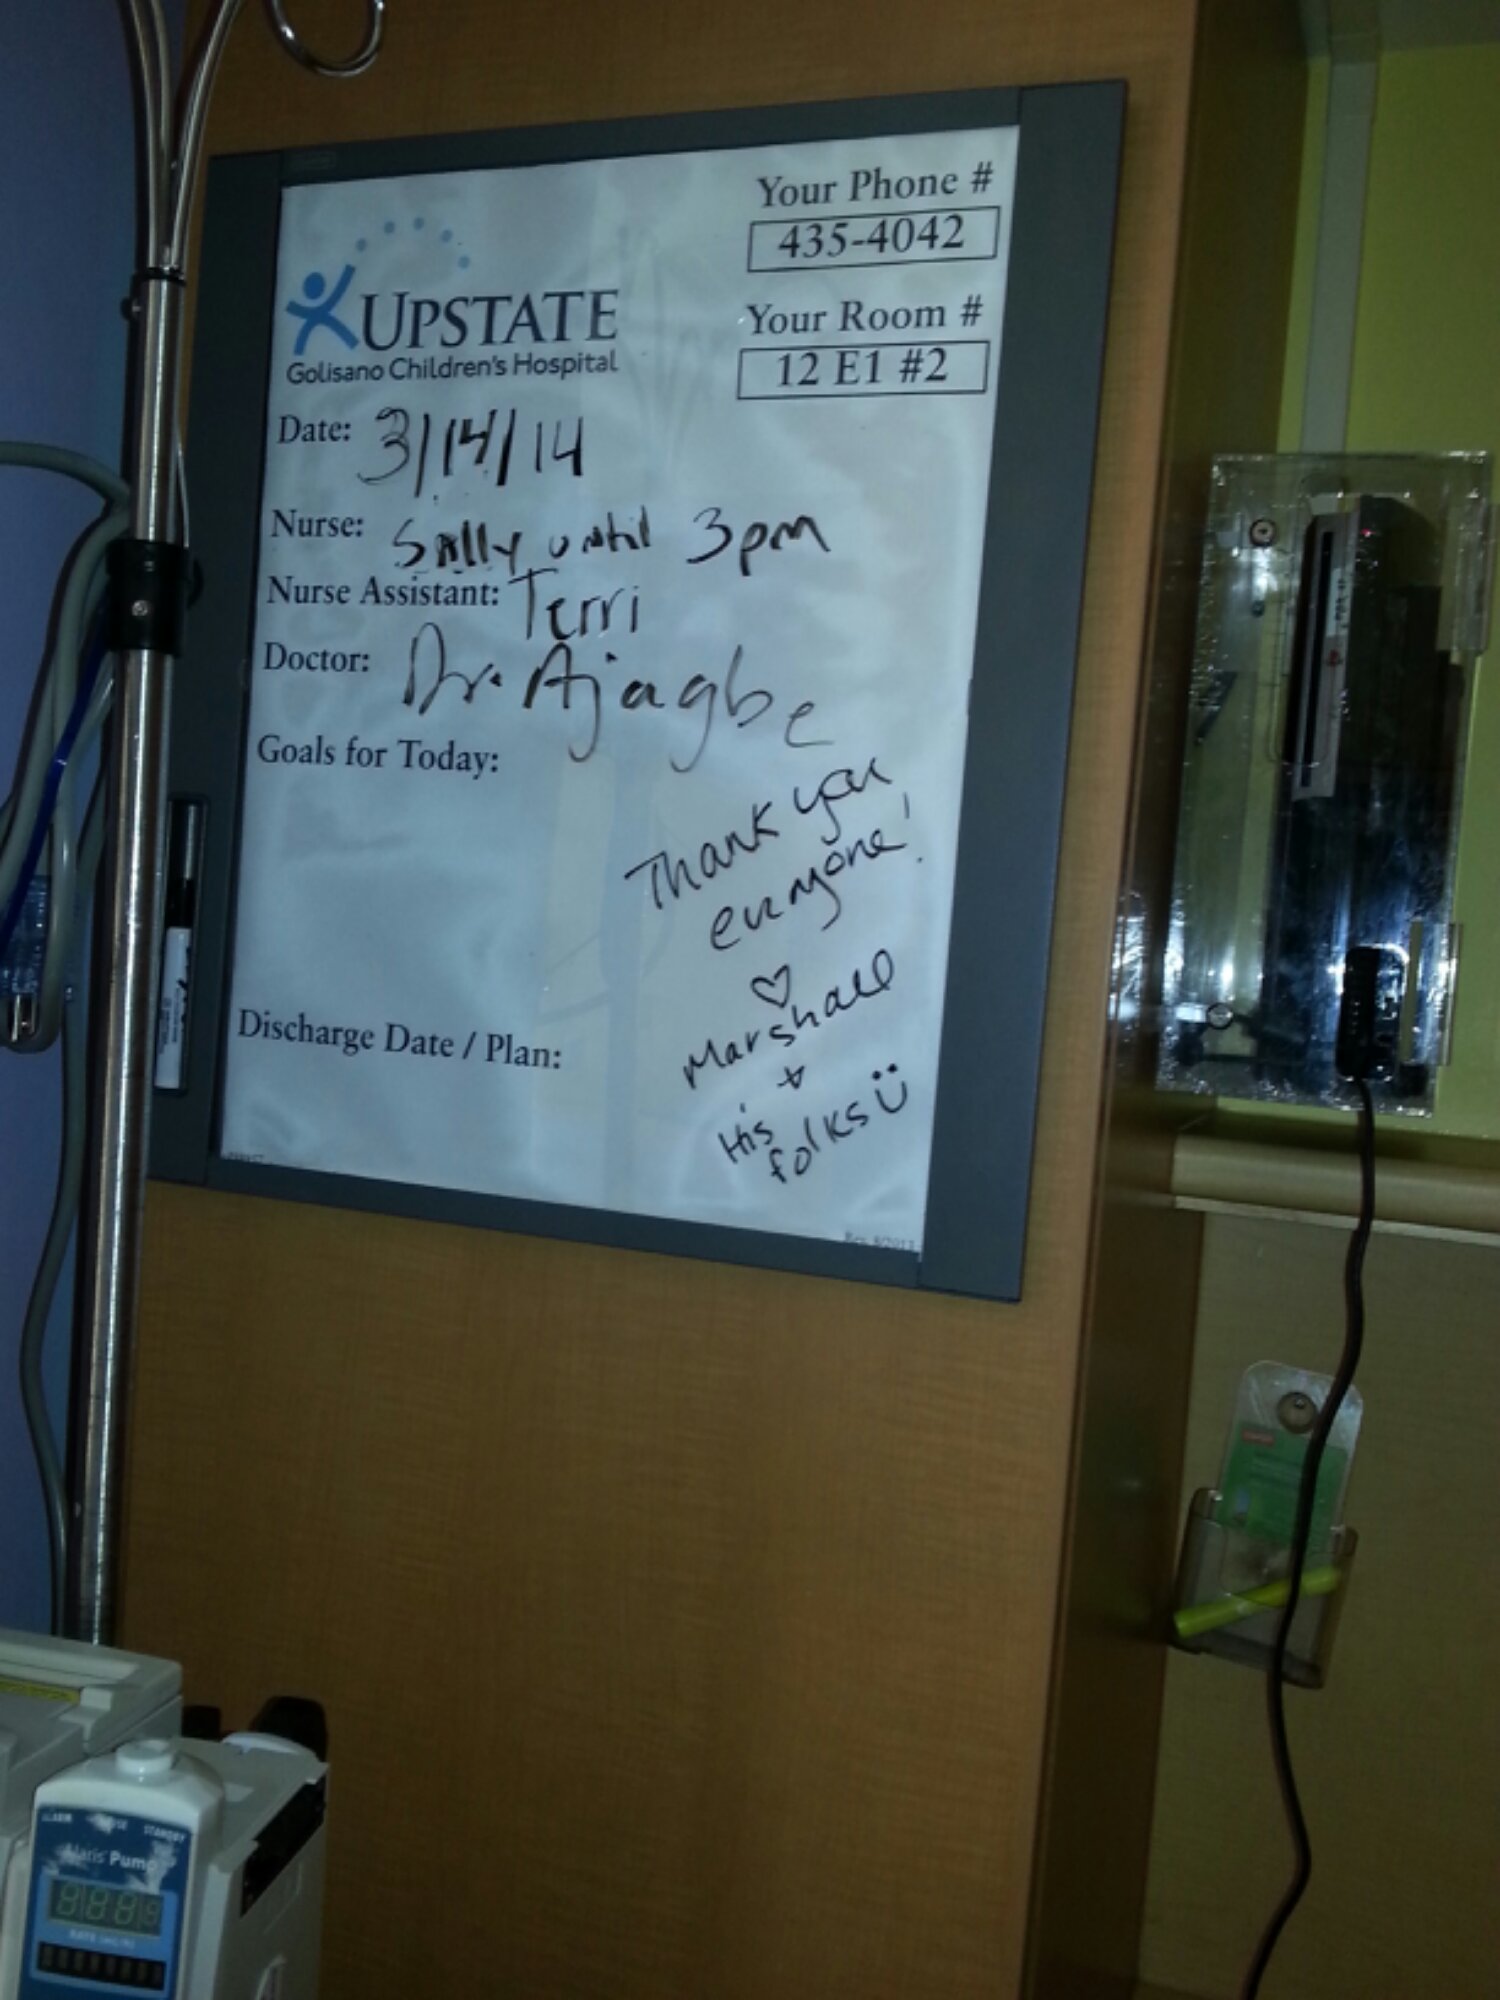 Your Phone #
435-4042
UPSTATE
Golisano Children's Hospital
Your Room #
12 E1 #2
Date: 3/14/14
Nurse: Sally until 3pm
Nurse Assistant: Terri
Doctor: Dr. Ajagbe
Goals for Today:
Thank you
everyone!
♡
Marshall
+
His
folks
Discharge Date / Plan:
STANDBY
Alaris Pump